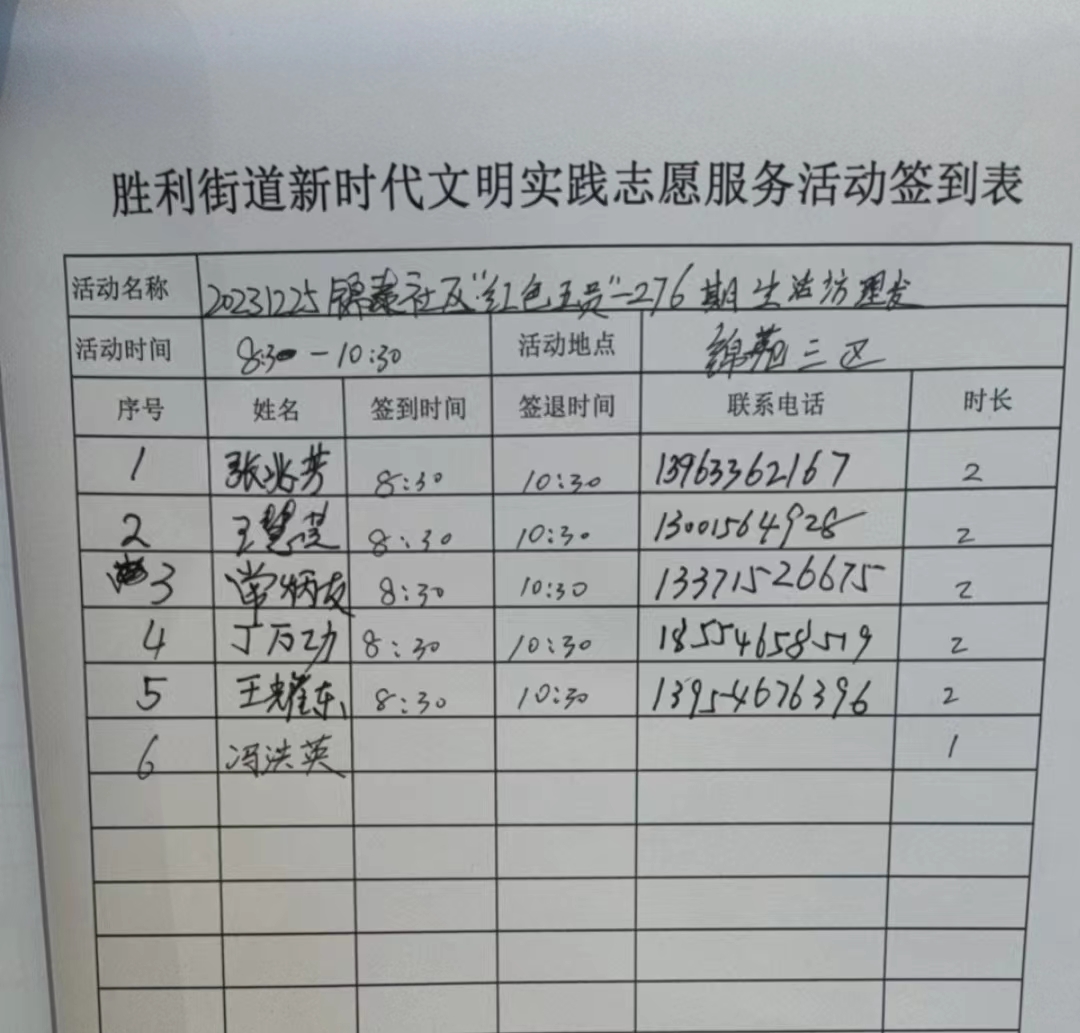 胜利街道新时代文明实践志愿服务活动签到表
活动名称 20231225锦苑社区"红色王员"-276期生活坊理发
活动时间 8:30-10:30 活动地点 锦苑三区
序号 姓名 签到时间 签退时间 联系电话 时长
1 张兆芳 8:30 10:30 13963362167 2
2 王慧 8:30 10:30 13001564928 2
3 常炳友 8:30 10:30 13371526675 2
4 丁万功 8:30 10:30 18554658519 2
5 王耀东 8:30 10:30 13954676396 2
6 冯洪英 1